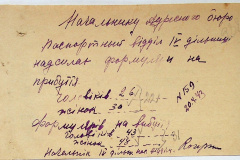 Начальнику Адресного бюро
Паспортний відділ IV дільниці
надсилає формуляри на
прибулі
чоловіків. 26
жінок 30
№ 159
формулярів на вибулі
чоловіків 43
жінок 48
Начальник IV дільниці